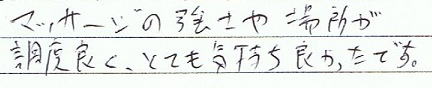 マッサージの強さや場所が
調度良く、とても気持ち良かったです。